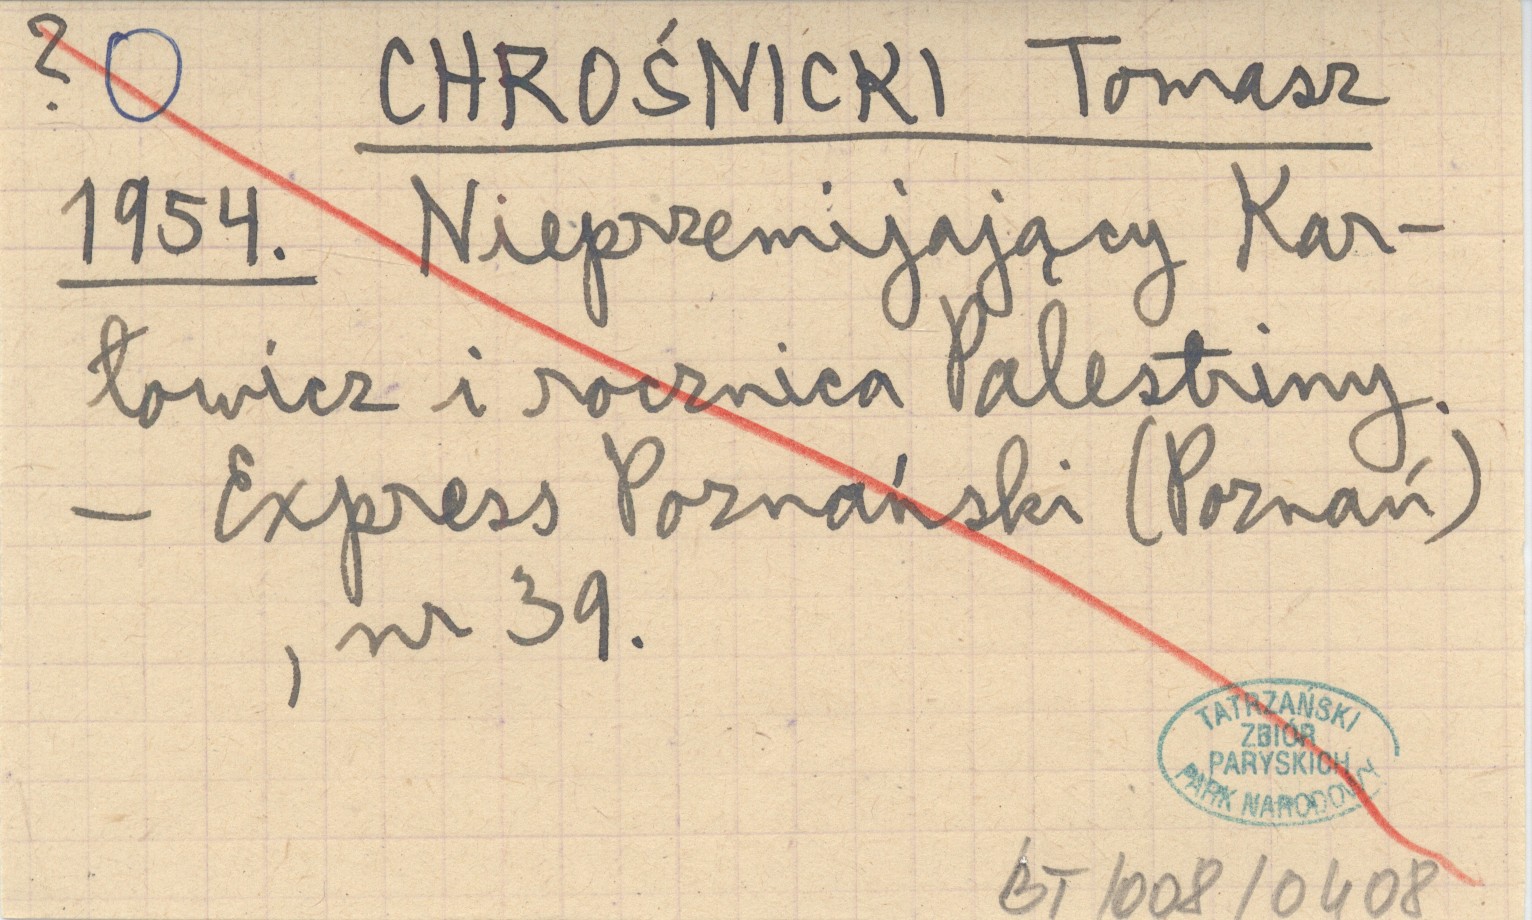 ? CHROŚNICKI Tomasz
1954. Nieprzemijający Kar-
łowicz i rocznica Palestriny.
— Express Poznański (Poznań)
, nr 39.
TATRZAŃSKI
ZBIÓR
PARYSKICH
PARK NARODOWY
BT/008/0408